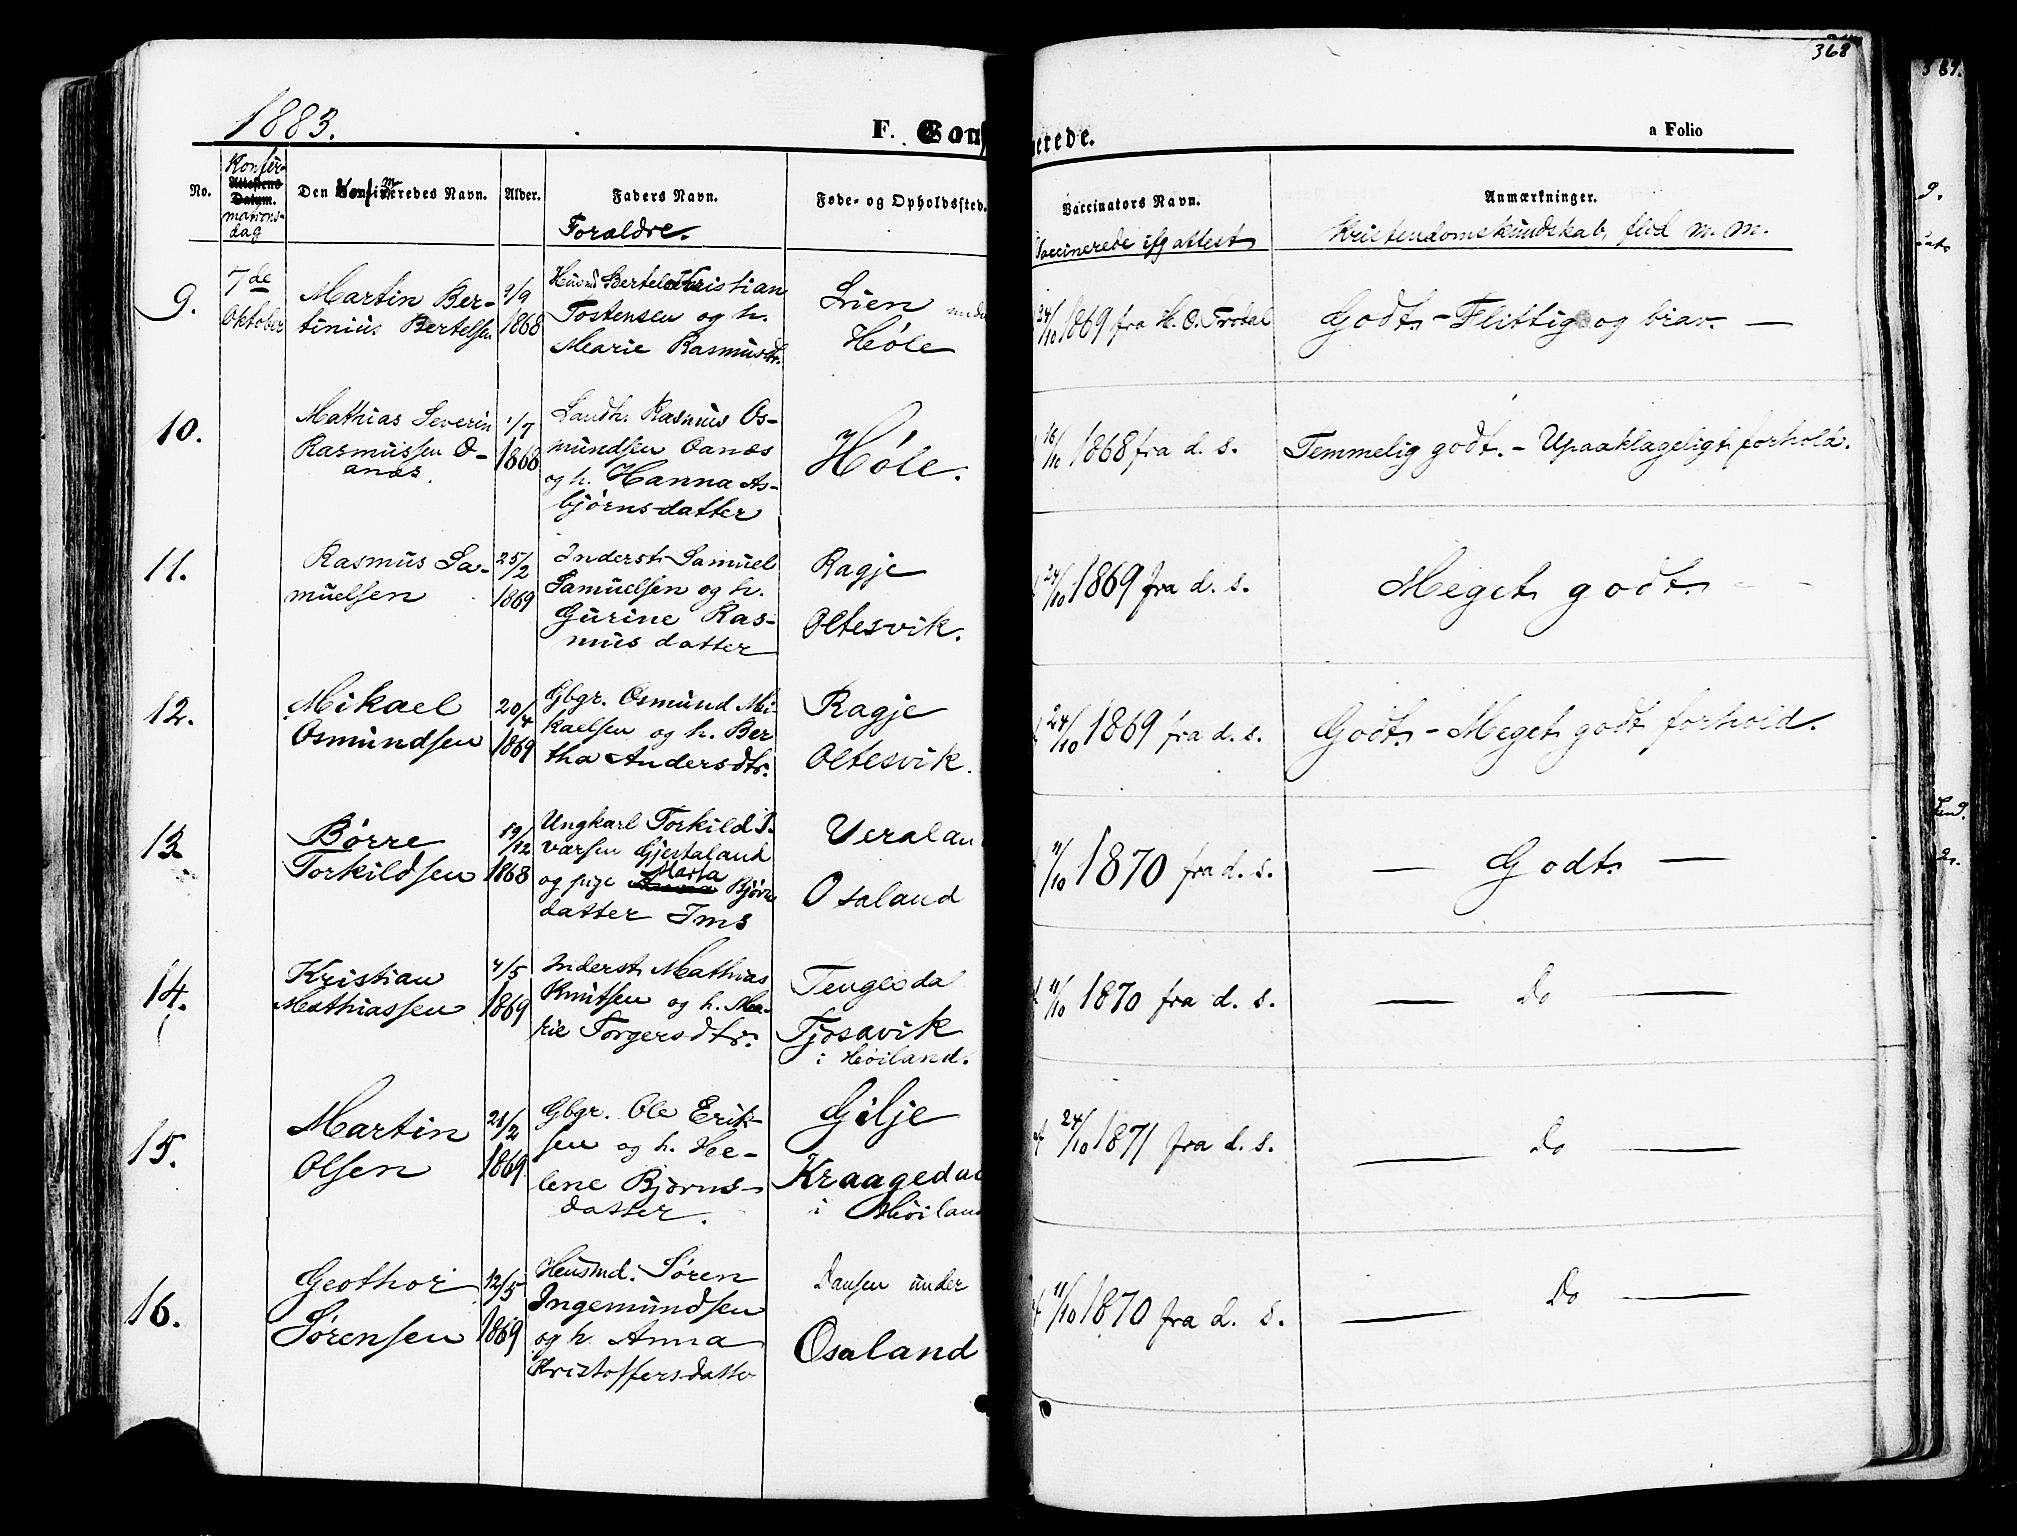 368
1883.
F. Con
erede.
a Folio
No.
Konfir-
Attestens
Datum.
mations-
dag
Den Konfirmeredes Navn.
Alder.
Faders Navn.
Forældre.
Føde- og Opholdssted.
Vaccinators Navn.
Vaccinerede ifg attest
Anmærkninger.
Kristendomskundskab, flid m. m.
9.
7de
Oktober
Martin Ber-
tinius Bertelsen
9/9
1868
Husmd Bertel Kristian
Tostensen og h.
Marie Rasmusdt.
Lien
Høle
24/10 1869 fra H. O. Trodal
Godt - Flittig og brav. —
10.
Mathias Severin
Rasmussen O-
anæs.
1/7
1868
Landh. Rasmus Os-
mundsen Oanæs
og h. Hanna As-
bjørnsdatter
Høle.
1868 fra d. s.
Temmelig godt. - Upaaklageligt forhold.
11.
Rasmus Sa-
muelsen
25/2
1869
Inderst Samuel
Samuelsen og h.
Gurine Ras-
mus datter
Ragje
Oltesvik.
24/10 1869 fra d. s.
Meget godt.
12.
Mikael
Osmundsen
20/4
1869
Gbgr. Osmund Mi-
kaelsen og h. Ber
tha Andersdtr.
Ragje
Oltesvik.
24/10 1869 fra d. s.
Godt. - Meget godt forhold.
13
Børre
Torkildsen
19/12
1868
Ungkarl Torkild I-
varsen Gjestaland
og pige Anna Marta Bjørn
datter Ims
Veralan
Osaland
11/10 1870 fra d. s.
— Godt. —
14.
Kristian
Mathiassen
4/5
1869
Inderst Mathias
Knutsen og h. Ma-
rie Torgersdtr.
Tengesda
Tjosavik
i Høiland.
11/10 1870 fra d. s.
— Do —
15.
Martin
Olsen
21/2
1869
Gbgr. Ole Erik-
sen og h. He-
lene Bjørns-
datter.
Gilje
Kraagedal
i Høiland
24/10 1871 fra d. s.
— Do —
16.
Geothor
Sørensen
12/5
1869
Husmd. Søren
Ingemundsen
og h. Anna
Kristoffersdatter
Dausen under
Osaland
11/10 1870 fra d. s.
— Do —